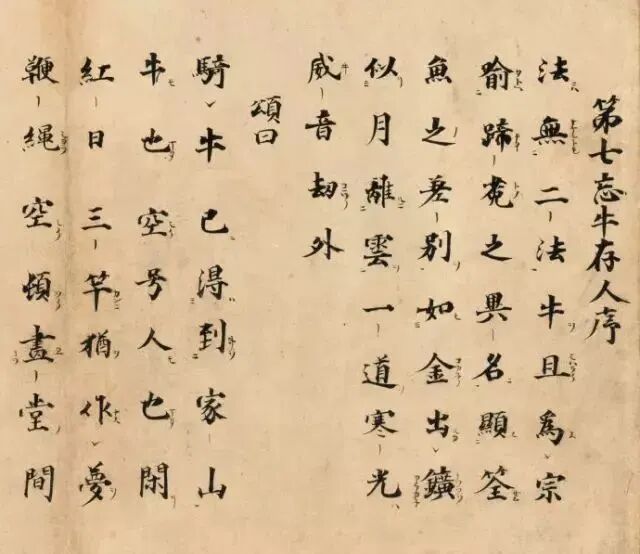 第七忘牛存人序
法無二法牛且為宗
喻蹄兎之異名顯筌
魚之差別如金出鑛
似月離雲一道寒光
威音劫外
頌曰
騎牛已淂到家山
牛也空号人也閑
紅日三竿猶作夢
鞭繩空頓畫堂間